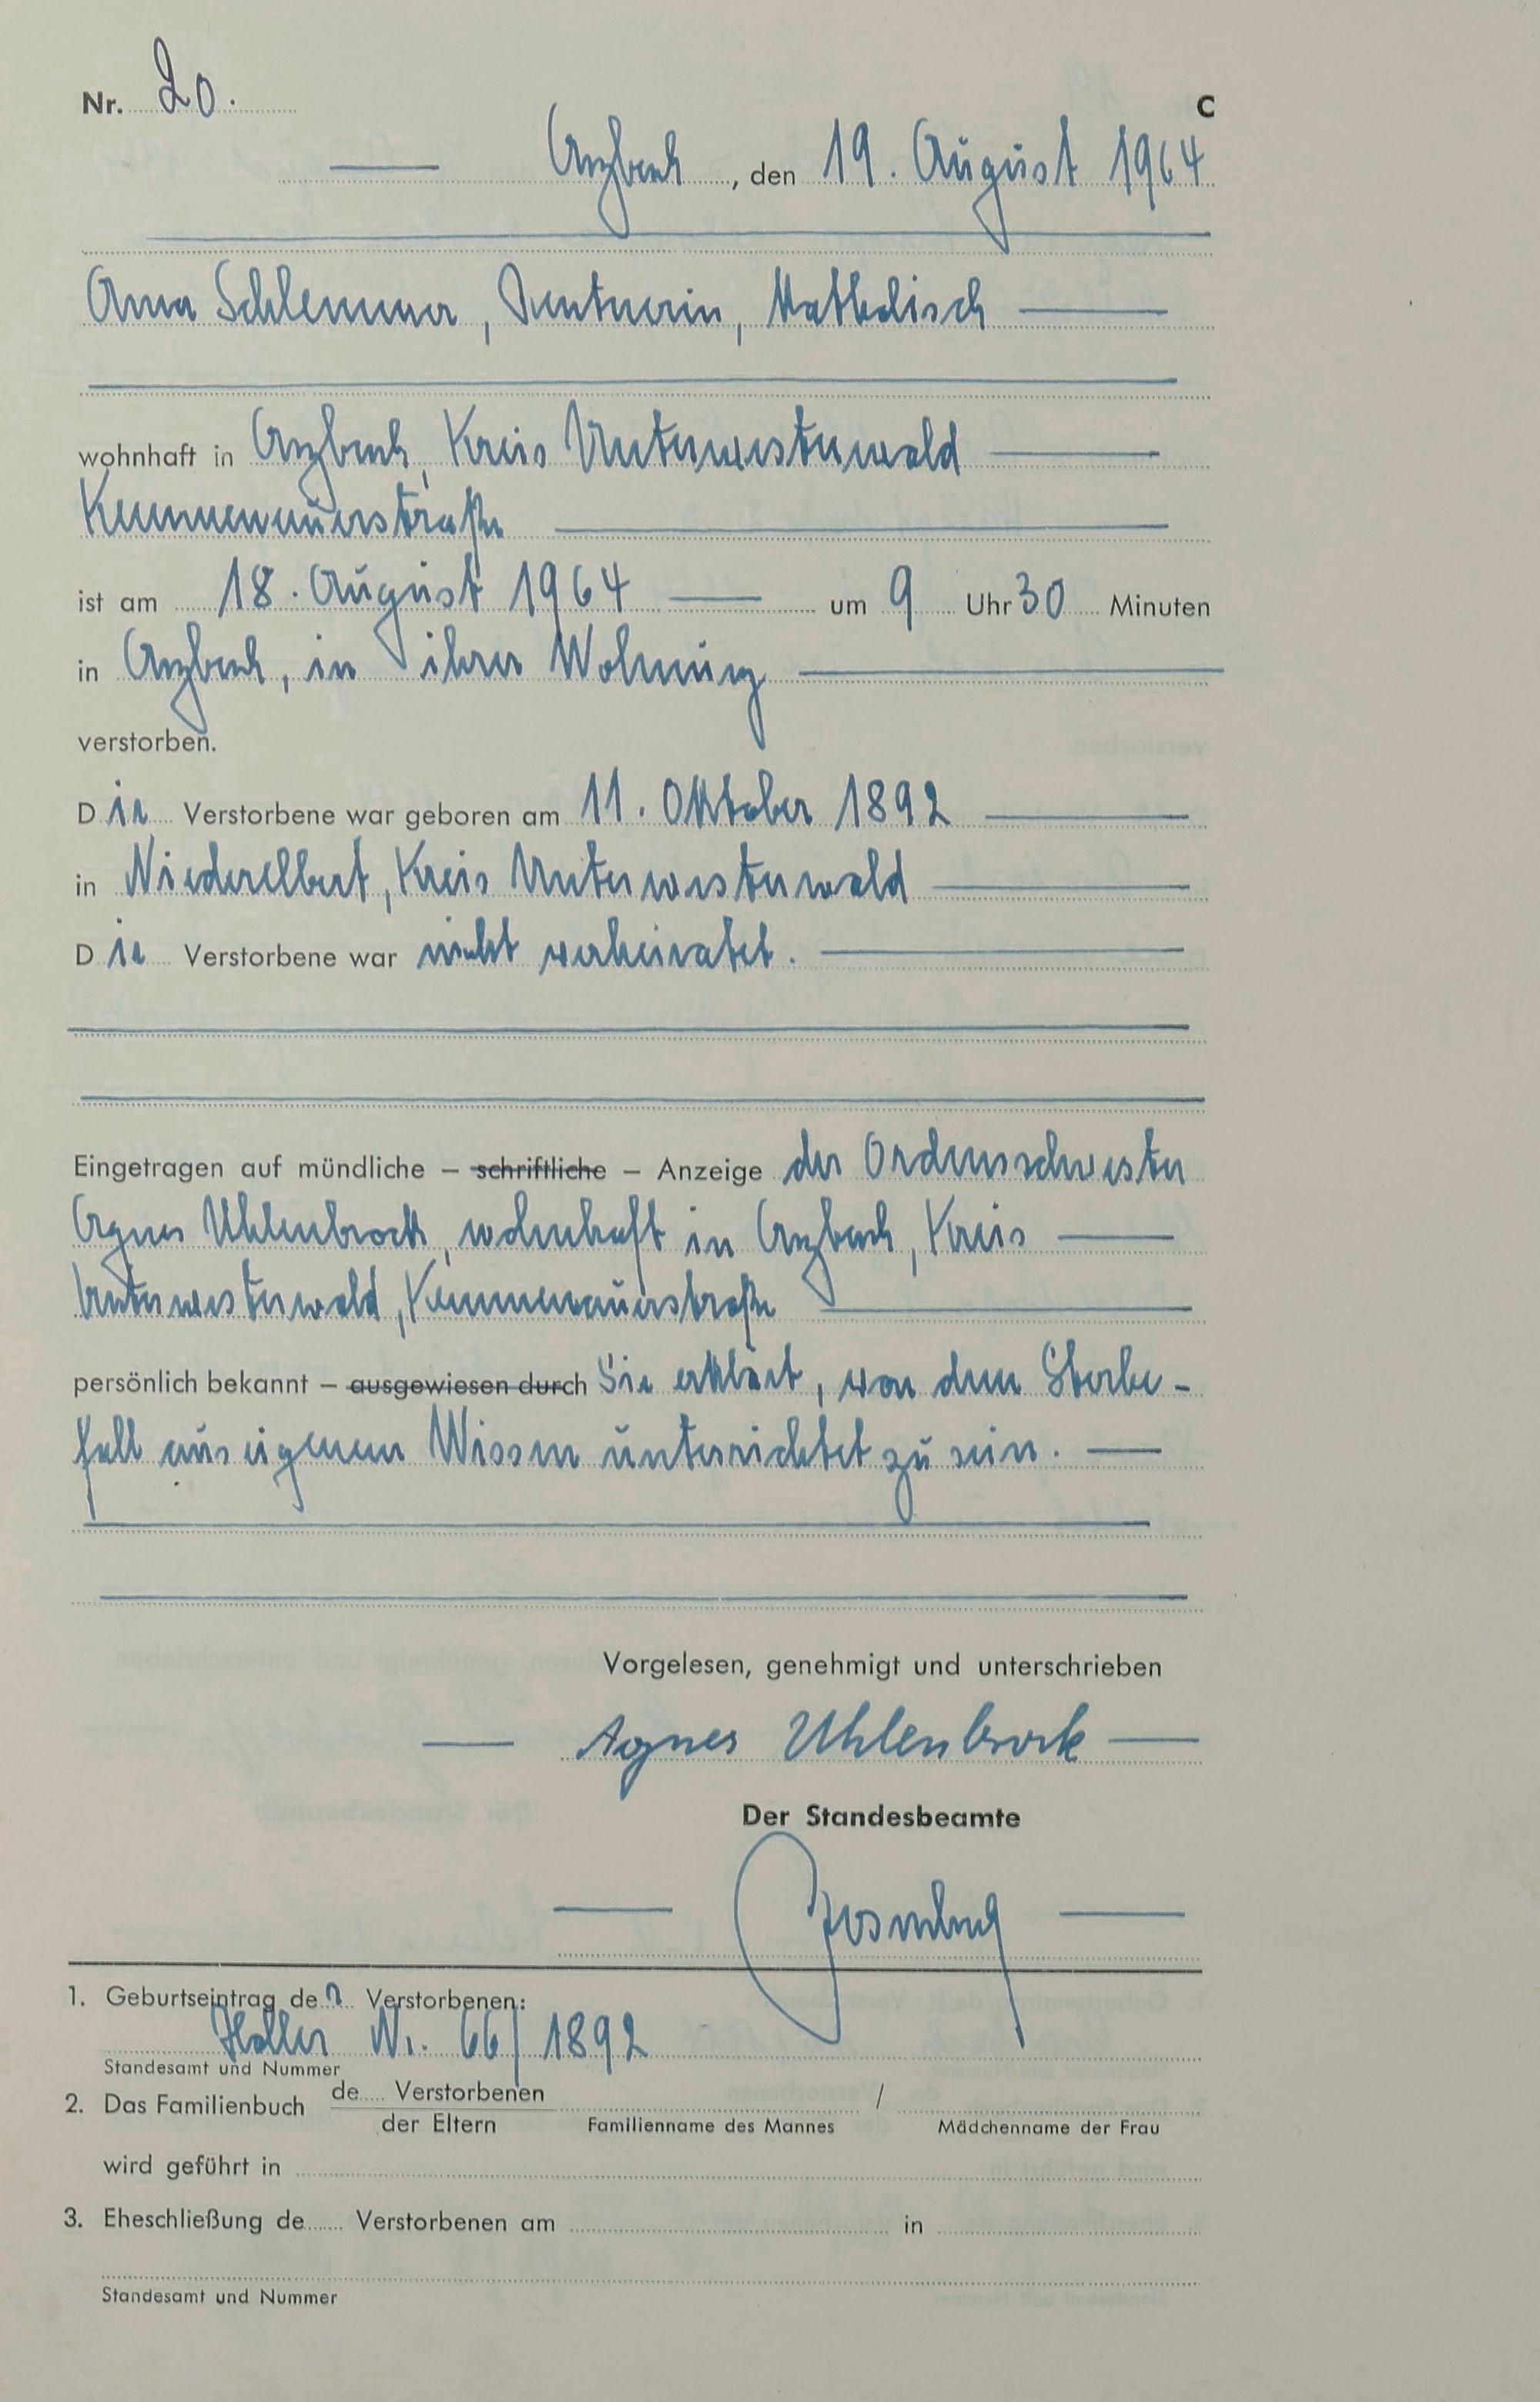 Nr. 20. C
Arzbach, den 19. August 1964
Anna Schlemmer, Rentnerin, Katholisch
wohnhaft in Arzbach, Kreis Unterwesterwald
Kemmenauerstraße
ist am 18. August 1964 um 9 Uhr 30 Minuten
in Arzbach, in ihrer Wohnung
verstorben.
Die Verstorbene war geboren am 11. Oktober 1892
in Niederelbert, Kreis Unterwesterwald
Die Verstorbene war nicht verheiratet.
Eingetragen auf mündliche – schriftliche – Anzeige der Ordensschwester
Agnes Uhlenbrock, wohnhaft in Arzbach, Kreis
Unterwesterwald, Kemmenauerstraße
persönlich bekannt – ausgewiesen durch Sie erklärt, von dem Sterbe-
fall aus eigenem Wissen unterrichtet zu sein.
Vorgelesen, genehmigt und unterschrieben
Agnes Uhlenbrock
Der Standesbeamte
1. Geburtseintrag der Verstorbenen:
Holler Nr. 66/1892
Standesamt und Nummer
2. Das Familienbuch de Verstorbenen /
der Eltern Familienname des Mannes Mädchenname der Frau
wird geführt in
3. Eheschließung de Verstorbenen am in
Standesamt und Nummer